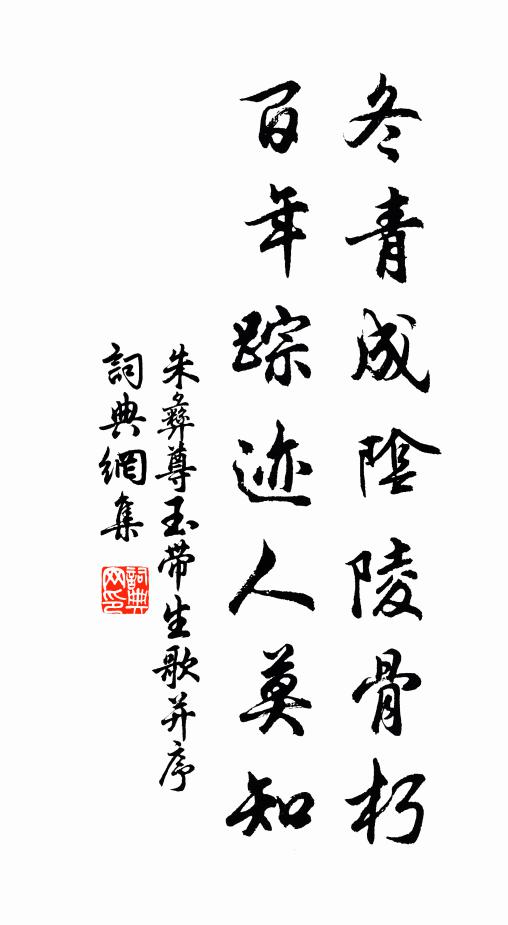 冬青成陰陵骨朽
百年踪迹人莫知
朱彝尊玉带生歌并序
詞典網集
詞典网印